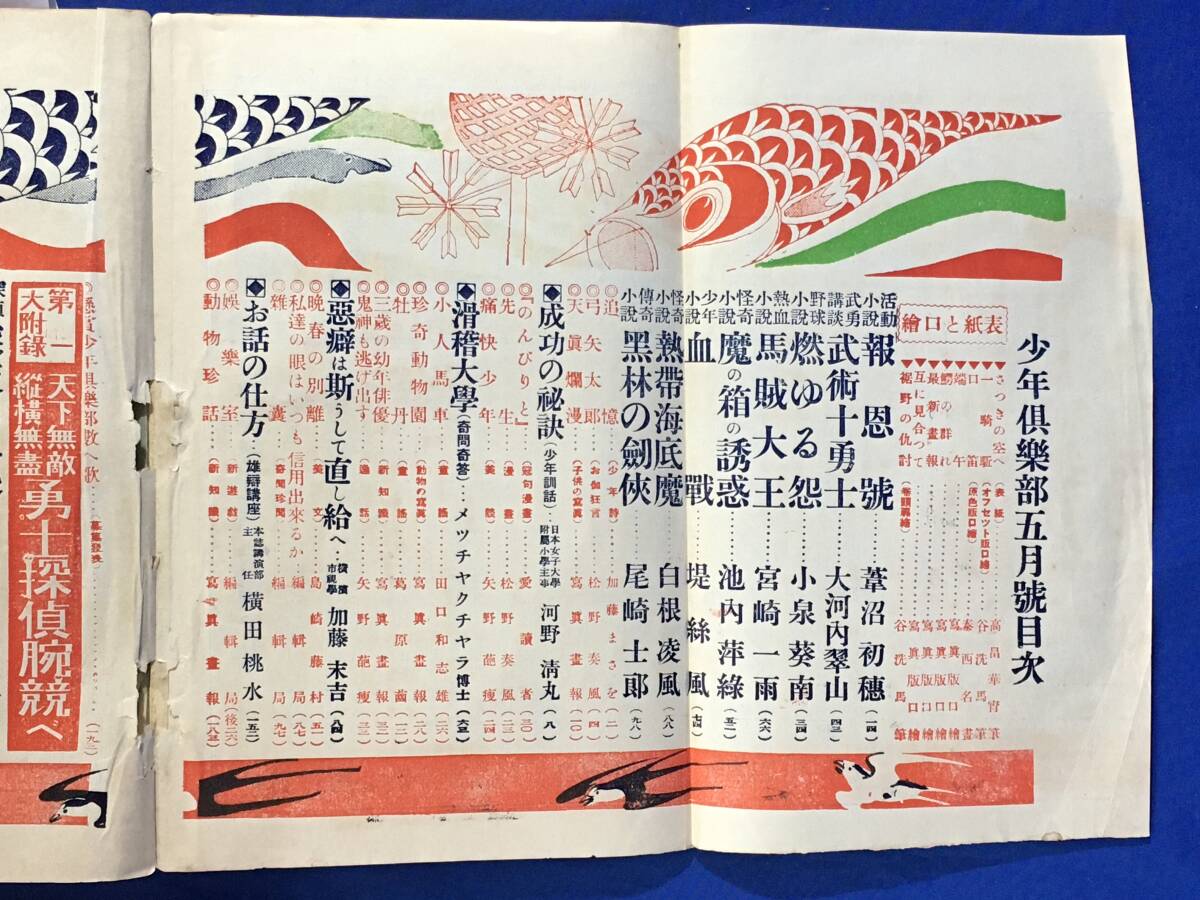 少年俱樂部五月號目次
表紙と口繪
さつきの空へ(表紙)高畠華宵筆
一騎驅(オフセツト版口繪)谷洗馬筆
口笛(原色版口繪)
端午 寫眞版口繪
鰐の群れ 寫眞版口繪
最新畫報 寫眞版口繪
互に見合つて 寫眞版口繪
裾野の仇討(卷頭興繪)谷洗馬筆
活動小說 報恩號 葦沼初穗(一四)
武勇講談 武術十勇士 大河內翠山(四三)
野球小說 燃ゆる怨 小泉葵南(三四)
熱血小說 馬賊大王 宮崎一雨(六六)
怪奇小說 魔の箱の誘惑 池內萍綠(五二)
少年小說 血戰 堤絲風(七四)
怪奇小說 熱帶海底魔 白根凌風(八八)
傳奇小說 黑林の劍俠 尾崎士郞(九八)
◎追憶(少年詩)加藤まさを(二)
◎弓矢太郞(お伽狂言)松野奏風(四)
◎天眞爛漫(子供の寫眞)寫眞畫報(一〇)
◆成功の祕訣(少年訓話)日本女子大學附屬小學主事 河野淸丸(八)
◎『のんびりと』(冠句漫畫)愛讀者(三〇)
◎先生(漫畫)松野奏風(二三)
◎痛快少年(美談)矢野葩瘦(四二)
◆滑稽大學(奇問奇答)‥メツチヤクチヤラ博士(六三)
◎小人馬車(童謠)田口和志雄(二六)
◎珍奇動物園(動物の寫眞)寫眞畫報(二八)
◎牡丹(童謠)葛原𦾔(三二)
◎三歲の幼年俳優(新知識)寫眞畫報(三三)
◎鬼神も逃げ出す(逸話)矢野葩瘦(三三)
◆惡癖は斯うして直し給へ‥橫濱市視學 加藤末吉(八四)
◎晚春の別離(美文)島崎藤村(五一)
◎私達の眼はいつも信用出來るか‥編輯局(八七)
◎雜囊(奇聞珍聞)編輯局(九七)
◆お話の仕方(雄辯講座)本誌講演部主任 橫田桃水(一五二)
◎娛樂室(新遊戲)編輯局(後二六)
◎動物珍話(新知識)寫眞畫報(一八五)
◎懸賞少年俱樂部數へ歌(一九二)
第一大附錄 天下無敵縱橫無盡 勇士探偵腕競べ